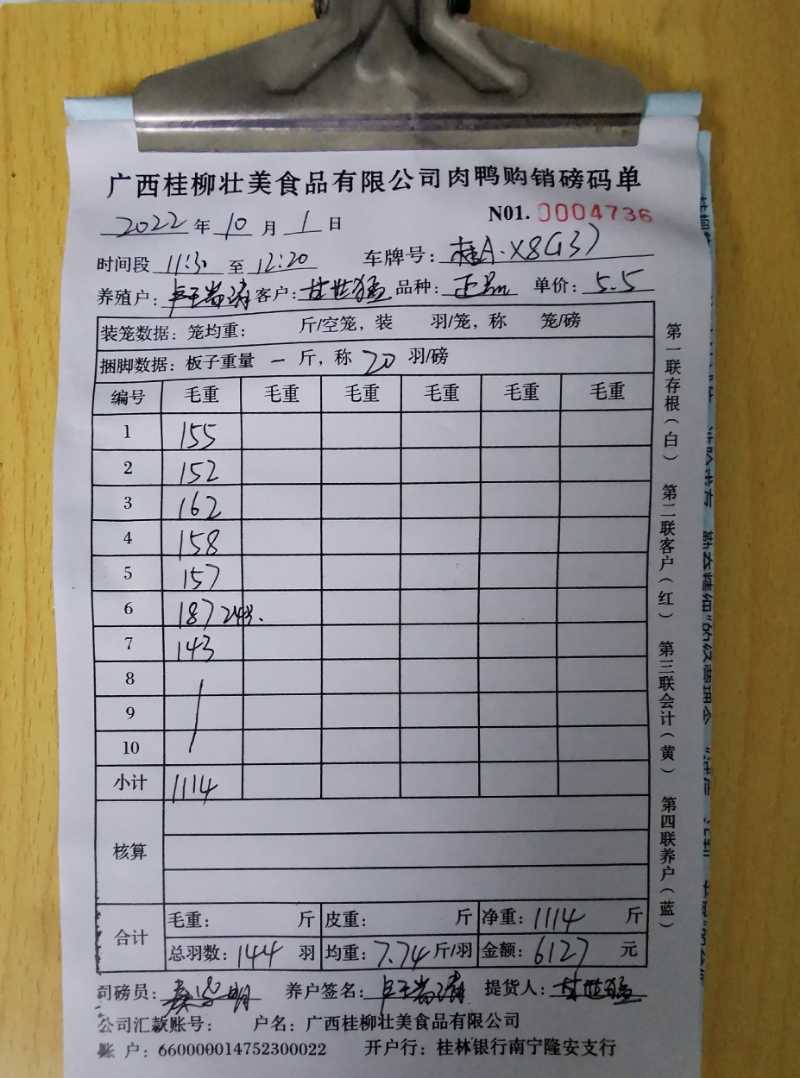 广西桂柳壮美食品有限公司肉鸭购销磅码单
2022年10月1日 N01.0004736
时间段 11:30 至 12:20 车牌号：桂A·X8G37
养殖户： 客户：甘世猛 品种： 单价：5.5
装笼数据：笼均重： 斤/空笼，装 羽/笼，称 笼/磅
捆脚数据：板子重量 一 斤，称 20 羽/磅
编号 毛重 毛重 毛重 毛重 毛重 毛重
1 155
2 152
3 162
4 158
5 157
6 187 24羽.
7 143
8
9
10
小计 1114
核算
合计 毛重： 斤 皮重： 斤 净重：1114 斤
总羽数：144 羽 均重：7.74 斤/羽 金额：6127 元
司磅员： 养户签名： 提货人：甘世猛
公司汇款账号： 户名：广西桂柳壮美食品有限公司
账 户：660000014752300022 开户行：桂林银行南宁隆安支行
第一联存根（白） 第二联客户（红） 第三联会计（黄） 第四联养户（蓝）